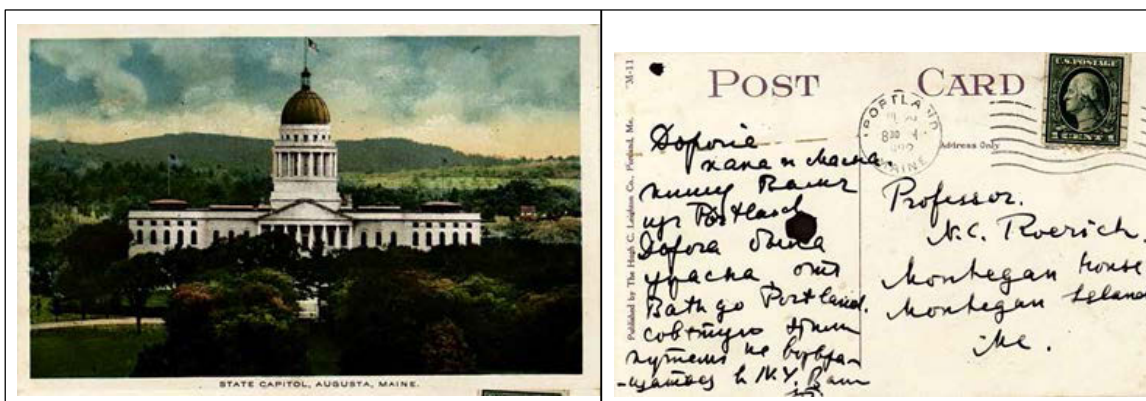 STATE CAPITOL, AUGUSTA, MAINE.
M-11
Published by The Hugh C. Leighton Co., Portland, Me.
POST CARD
U.S. POSTAGE
1 CENT 1
PORTLAND
MAINE
830
Address Only
Дорогіе
папа и мама.
пишу Вамъ
изъ Portland
Дорога была
ужасна отъ
Bath до Portland.
совѣтую этим
путемъ не возвра-
-щаться в N.Y. Ваш
Professor.
N.C. Roerich.
Monhegan House
Monhegan Island
Me.